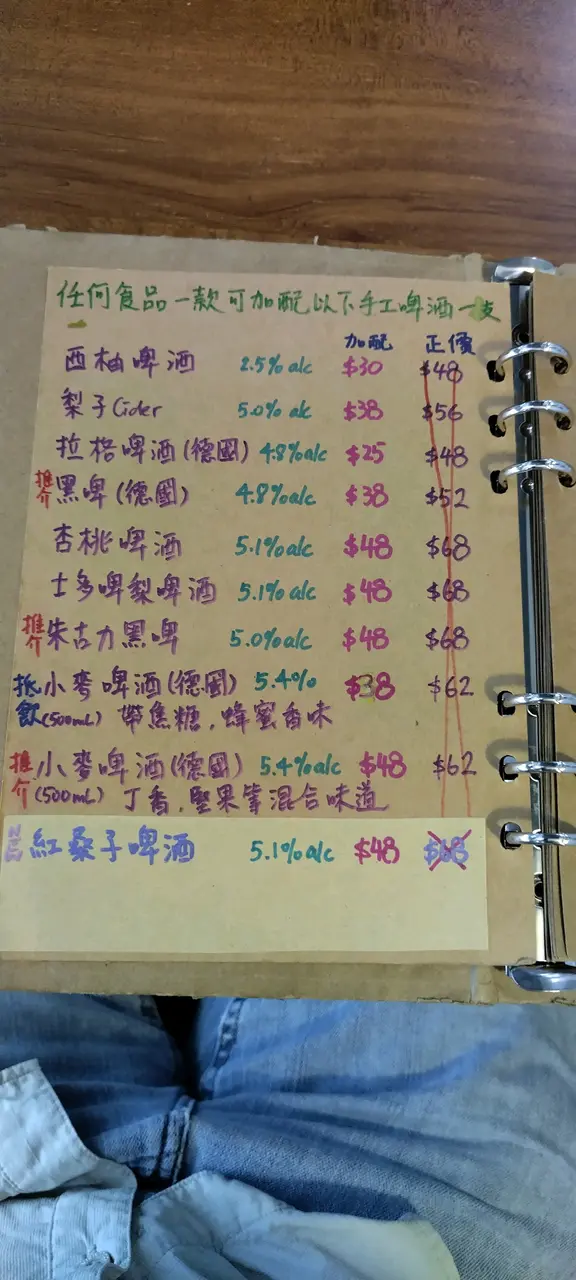 任何食品一款可加配以下手工啤酒一支
加配 正價
西柚啤酒 2.5% alc $30 $48
梨子Cider 5.0% alc $38 $56
拉格啤酒(德國) 4.8%alc $25 $48
推介 黑啤(德國) 4.8%alc $38 $52
杏桃啤酒 5.1%alc $48 $68
士多啤梨啤酒 5.1%alc $48 $68
推介 朱古力黑啤 5.0%alc $48 $68
抵飲 小麥啤酒(德國) 5.4% $38 $62
(500mL) 帶焦糖,蜂蜜香味
推介 小麥啤酒(德國) 5.4%alc $48 $62
(500mL) 丁香,堅果等混合味道
紅桑子啤酒 5.1%alc $48 $68